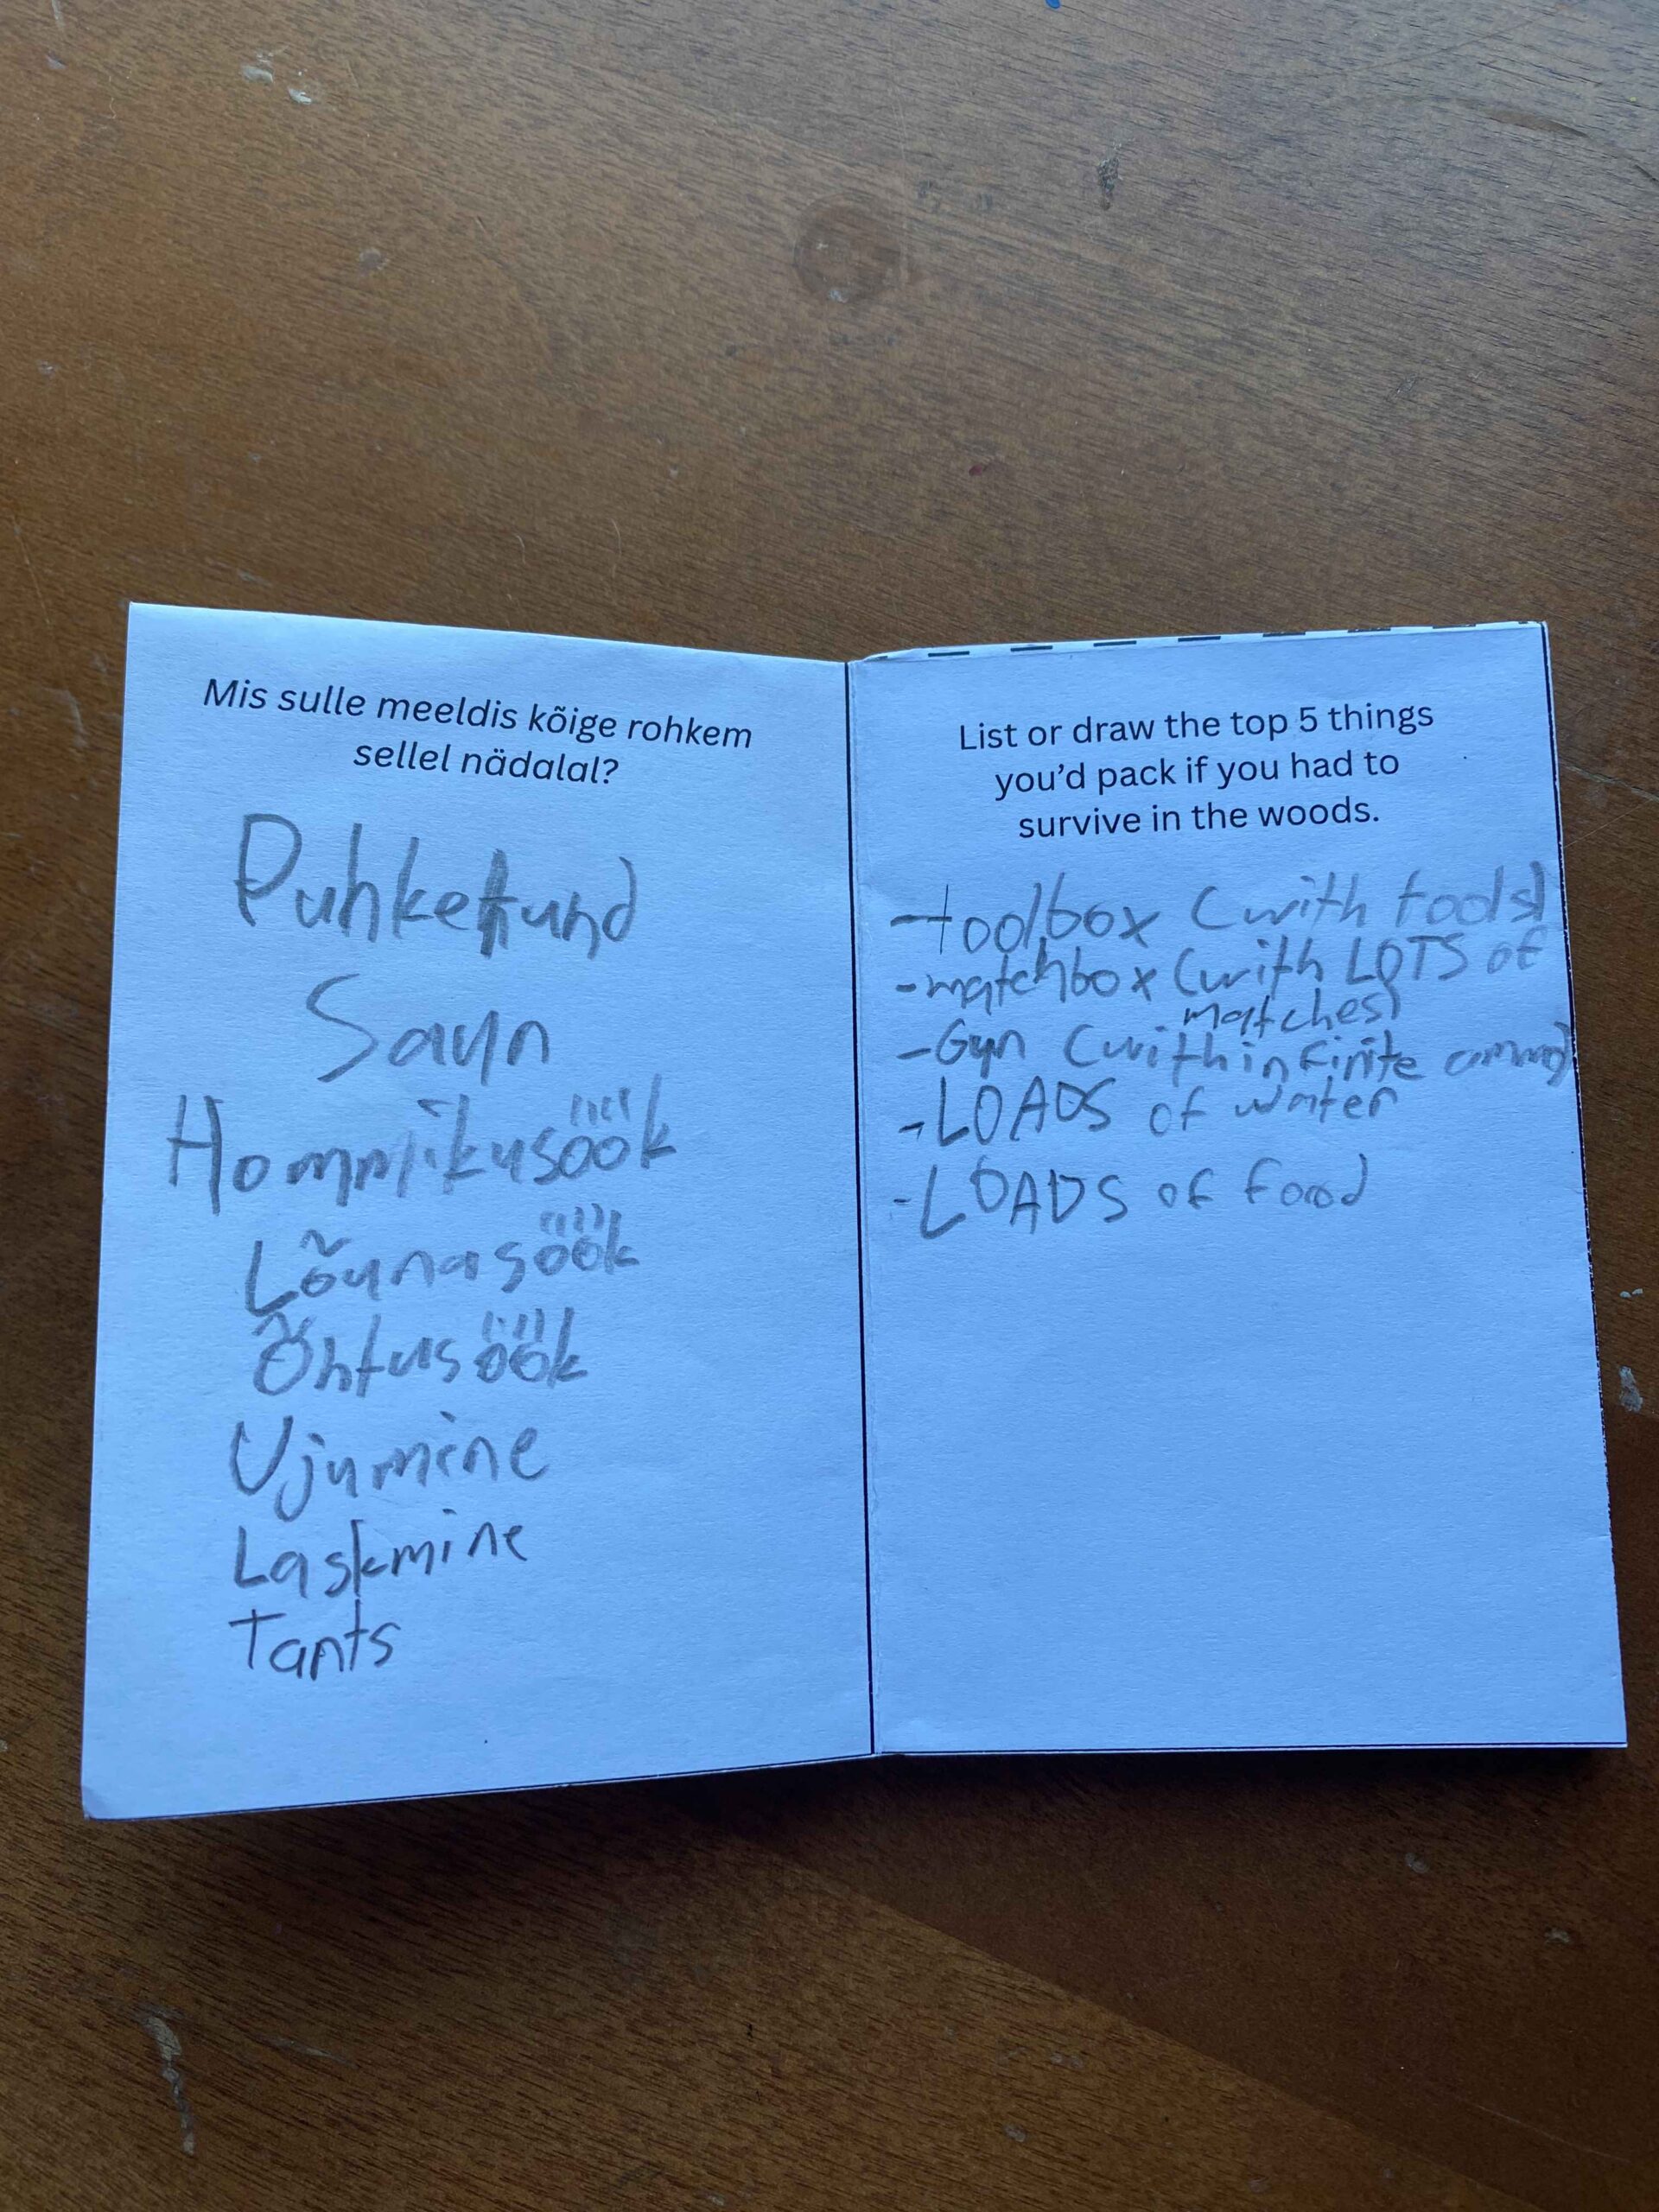 Mis sulle meeldis kõige rohkem
sellel nädalal?
Puhketund
Saun
Hommikusöök
Lõunasöök
Õhtusöök
Ujumine
Laskmine
Tants
List or draw the top 5 things
you'd pack if you had to
survive in the woods.
-toolbox (with tools)
-matchbox (with LOTS of
matches)
-Gun (with infinite ammo)
-LOADS of water
-LOADS of food